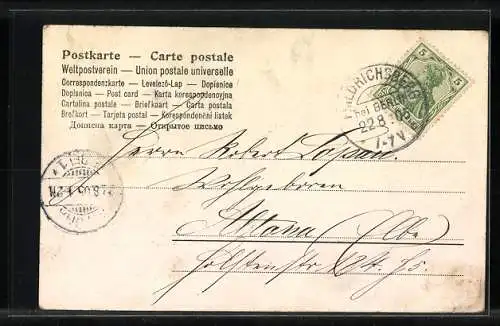 Postkarte — Carte postale
Weltpostverein — Union postale universelle
Correspondenzkarte — Levelező-Lap — Dopisnice
Dopisnica — Post card — Karta korespondencyjna
Cartolina postale — Briefkaart — Carta postala
Brefkort — Tarjeta postal — Korespondenční lístek
Дописна карта — Открытое письмо
5 5
FRIEDRICHSBERG
bei BERLIN
22.8.
7-8 V.
Herrn Robert
Wohlgeboren
Altona (Elbe)
Holstenstr.